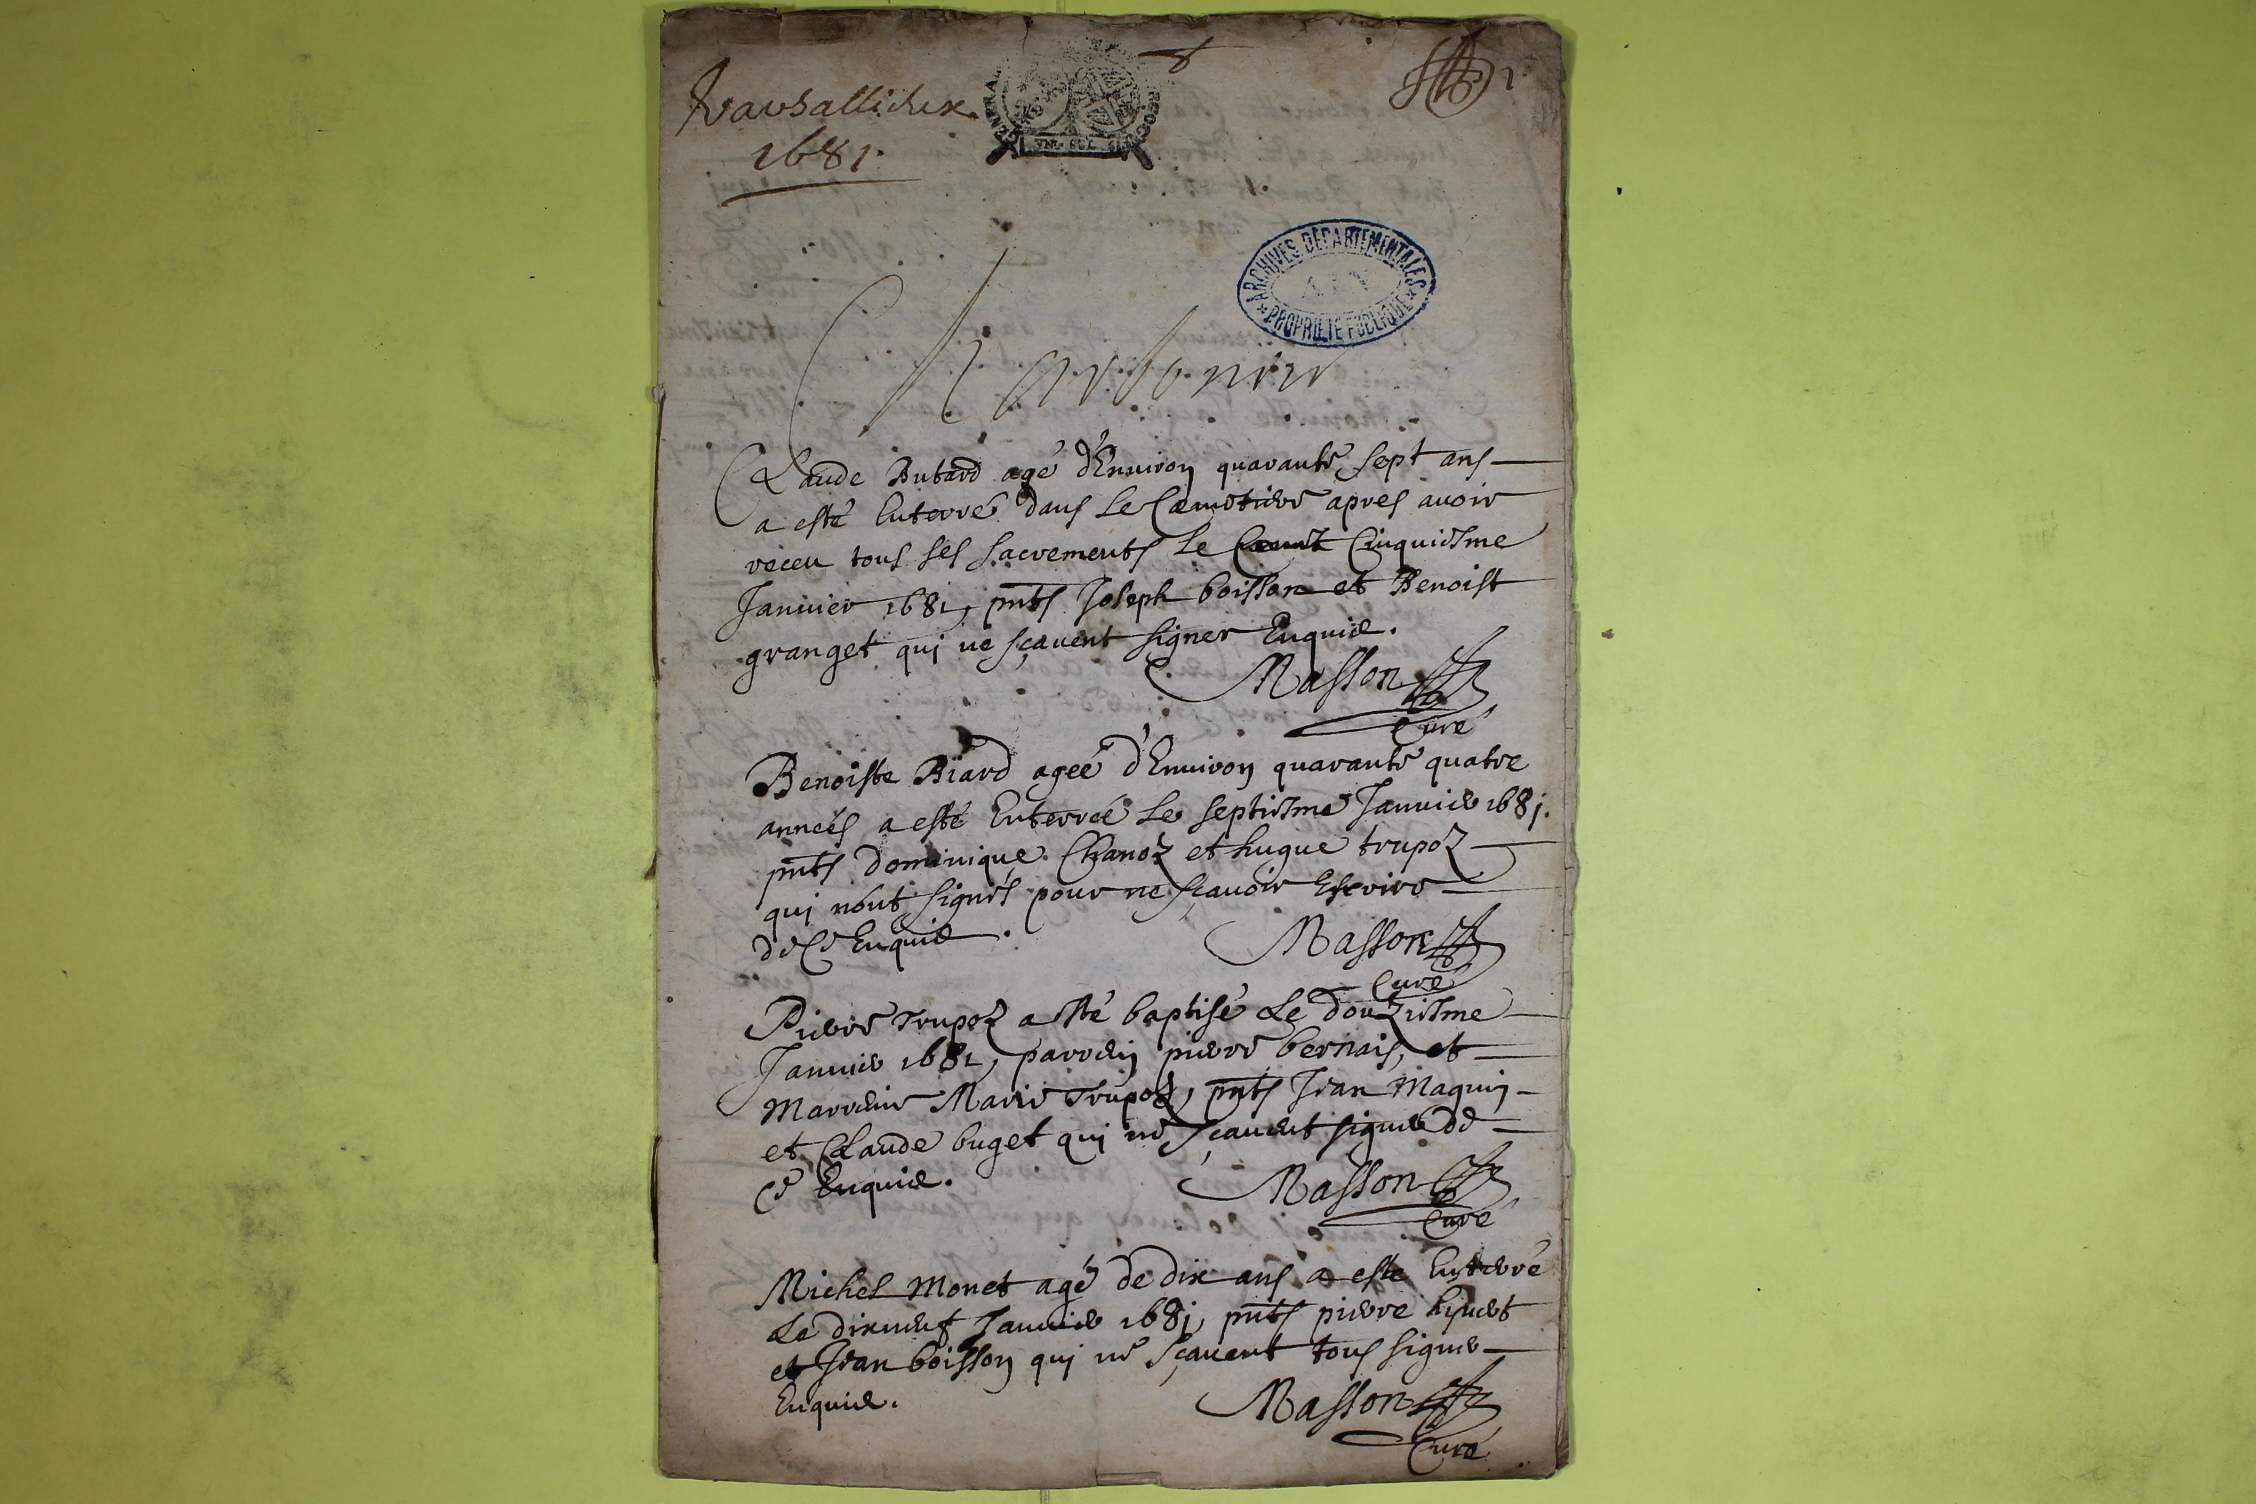 Versailleux
1681.
GENERA
VN. SOL
ARCHIVES DÉPARTEMENTALES
AIN
PROPRIÉTÉ PUBLIQUE
Charbonnier
Claude Butard agé d'Enuiron quarante sept ans
a esté Enterré dans Le Cæmetiere apres auoir
receu tous ses sacrements Le Cinquiesme
Januier 1681, pnts Joseph boisson et Benoist
granget qui ne sçauent signer Enquis.
Masson
Curé
Benoiste Biard ageé d'Enuiron quarante quatre
anneés a esté Enterreé Le septiesme Januier 1681.
pnts dominique Chanoz et hugue trupoz
qui n'ont signés pour ne sçauoir Escrire
de Ce Enquis.
Masson
Curé
Pierre Trupoz a esté baptisé Le douziesme
Januier 1681, parrein pierre bernais, et
Marreine Marie Trupoz, pnts Jean Maguin
et Claude buget qui ne sçauent signer de
Ce Enquis.
Masson
Curé
Michel Monet agé de dix ans a esté Enterré
Le dixneuf Januier 1681, pnts pierre
et Jean boisson qui ne sçauent tous signer
Enquis.
Masson
Curé